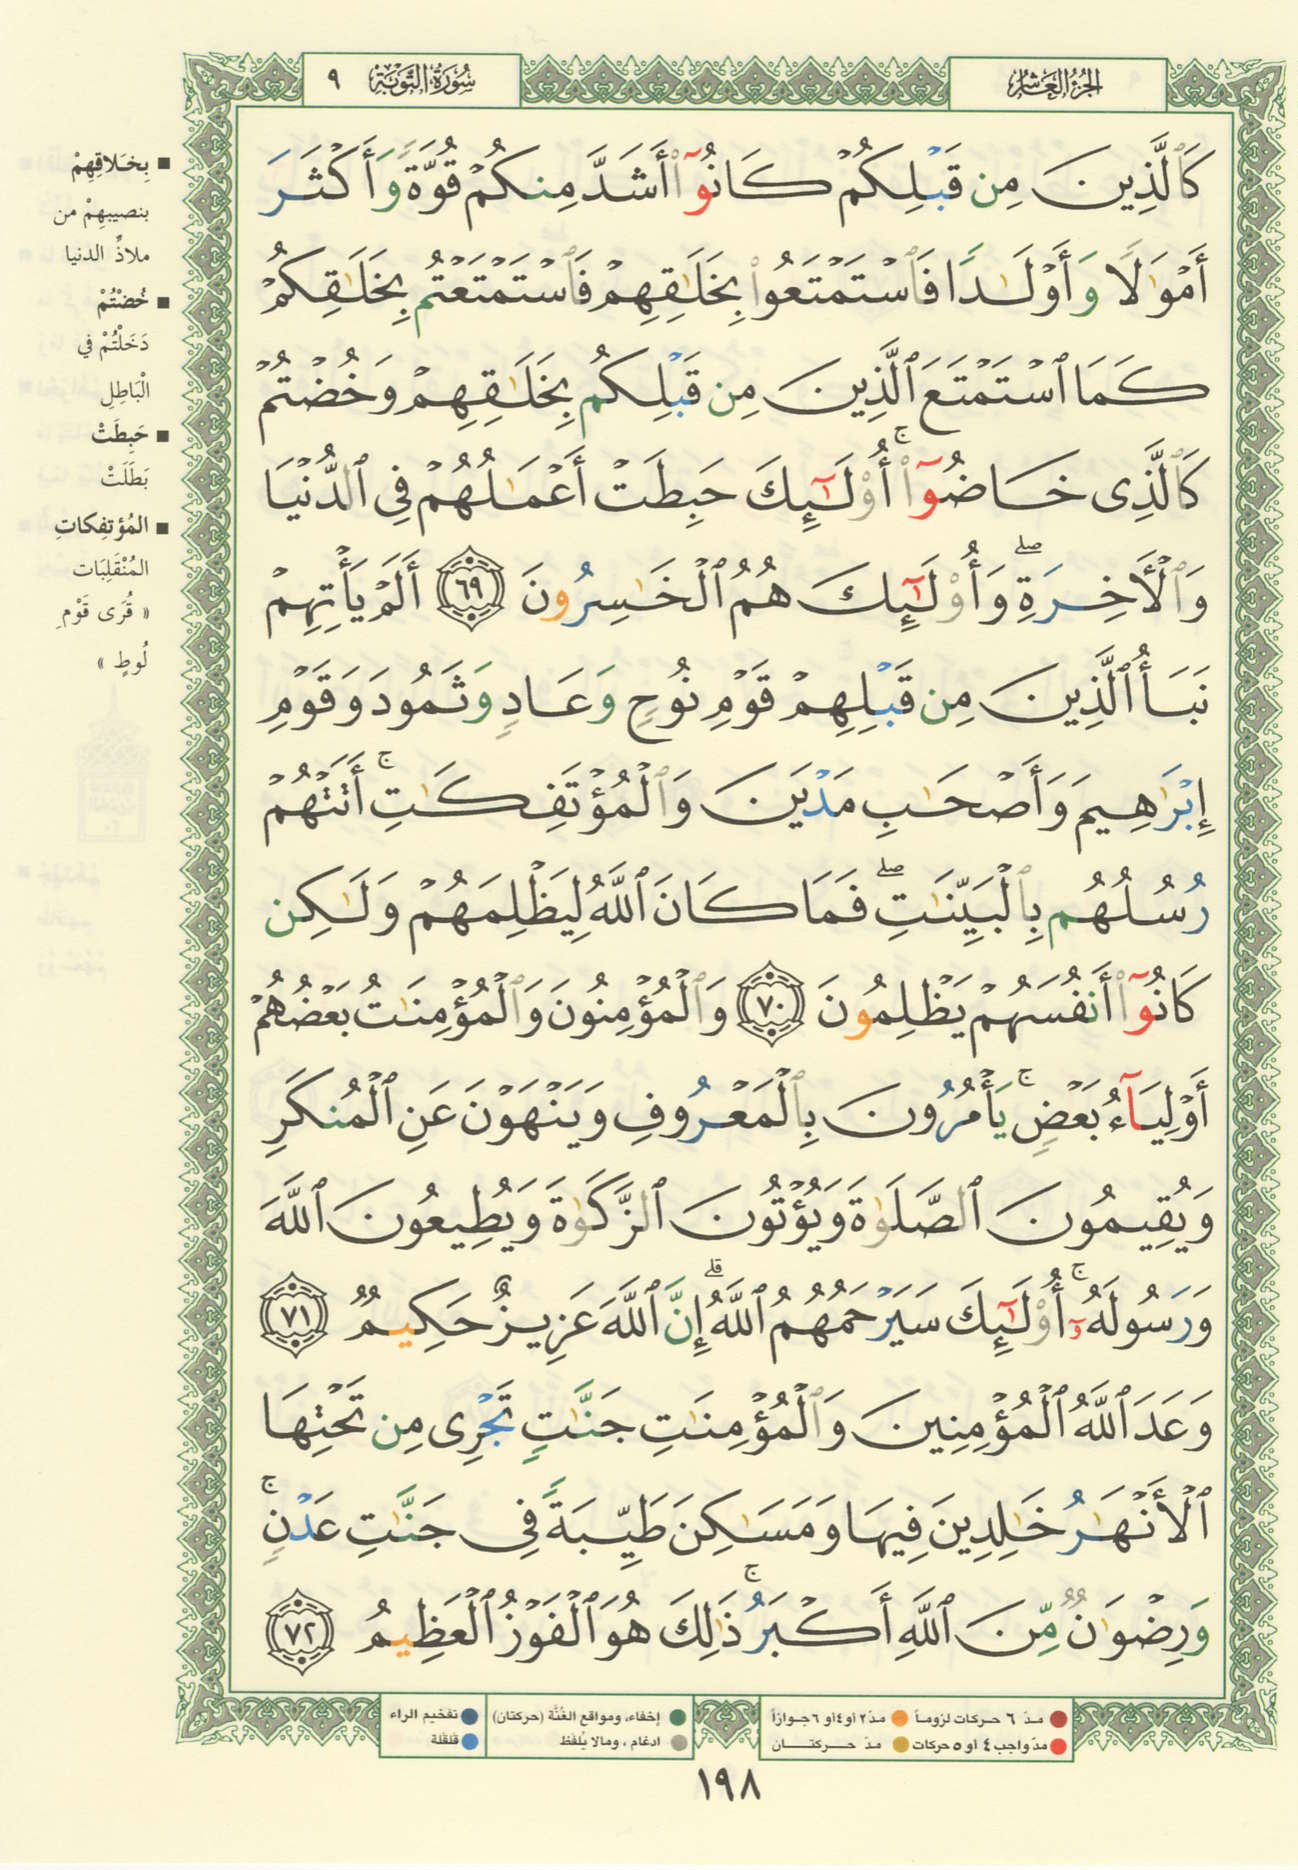 الجزء العاشر
سورة التوبة ٩
كَٱلَّذِينَ مِن قَبْلِكُمْ كَانُوٓا۟ أَشَدَّ مِنكُمْ قُوَّةً وَأَكْثَرَ
أَمْوَٰلًا وَأَوْلَٰدًا فَٱسْتَمْتَعُوا۟ بِخَلَٰقِهِمْ فَٱسْتَمْتَعْتُم بِخَلَٰقِكُمْ
كَمَا ٱسْتَمْتَعَ ٱلَّذِينَ مِن قَبْلِكُم بِخَلَٰقِهِمْ وَخُضْتُمْ
كَٱلَّذِى خَاضُوٓا۟ ۚ أُو۟لَٰٓئِكَ حَبِطَتْ أَعْمَٰلُهُمْ فِى ٱلدُّنْيَا
وَٱلْأَخِرَةِ ۖ وَأُو۟لَٰٓئِكَ هُمُ ٱلْخَٰسِرُونَ ٦٩ أَلَمْ يَأْتِهِمْ
نَبَأُ ٱلَّذِينَ مِن قَبْلِهِمْ قَوْمِ نُوحٍ وَعَادٍ وَثَمُودَ وَقَوْمِ
إِبْرَٰهِيمَ وَأَصْحَٰبِ مَدْيَنَ وَٱلْمُؤْتَفِكَٰتِ ۚ أَتَتْهُمْ
رُسُلُهُم بِٱلْبَيِّنَٰتِ ۖ فَمَا كَانَ ٱللَّهُ لِيَظْلِمَهُمْ وَلَٰكِن
كَانُوٓا۟ أَنفُسَهُمْ يَظْلِمُونَ ٧٠ وَٱلْمُؤْمِنُونَ وَٱلْمُؤْمِنَٰتُ بَعْضُهُمْ
أَوْلِيَآءُ بَعْضٍ ۚ يَأْمُرُونَ بِٱلْمَعْرُوفِ وَيَنْهَوْنَ عَنِ ٱلْمُنكَرِ
وَيُقِيمُونَ ٱلصَّلَوٰةَ وَيُؤْتُونَ ٱلزَّكَوٰةَ وَيُطِيعُونَ ٱللَّهَ
وَرَسُولَهُۥٓ ۚ أُو۟لَٰٓئِكَ سَيَرْحَمُهُمُ ٱللَّهُ ۗ إِنَّ ٱللَّهَ عَزِيزٌ حَكِيمٌ ٧١
وَعَدَ ٱللَّهُ ٱلْمُؤْمِنِينَ وَٱلْمُؤْمِنَٰتِ جَنَّٰتٍ تَجْرِى مِن تَحْتِهَا
ٱلْأَنْهَٰرُ خَٰلِدِينَ فِيهَا وَمَسَٰكِنَ طَيِّبَةً فِى جَنَّٰتِ عَدْنٍ ۚ
وَرِضْوَٰنٌ مِّنَ ٱللَّهِ أَكْبَرُ ۚ ذَٰلِكَ هُوَ ٱلْفَوْزُ ٱلْعَظِيمُ ٧٢
■ بِخَلاقِهِمْ
بنصيبهِمْ من
ملاذِّ الدنيا
■ خُضْتُمْ
دَخَلْتُمْ في
الْبَاطِلِ
■ حَبِطَتْ
بَطَلَتْ
■ المُؤتفِكاتِ
المُنْقَلِبَات
« قُرَى قَوْمِ
لُوطٍ »
مدّ ٦ حركات لزوماً مدّ ٢ أو ٤ أو ٦ جوازاً
مدّ واجب ٤ أو ٥ حركات مدّ حركتان
إخفاء، ومواقع الغُنَّة (حركتان)
ادغام ، ومالا يُلفَظ
تفخيم الراء
قلقلة
١٩٨